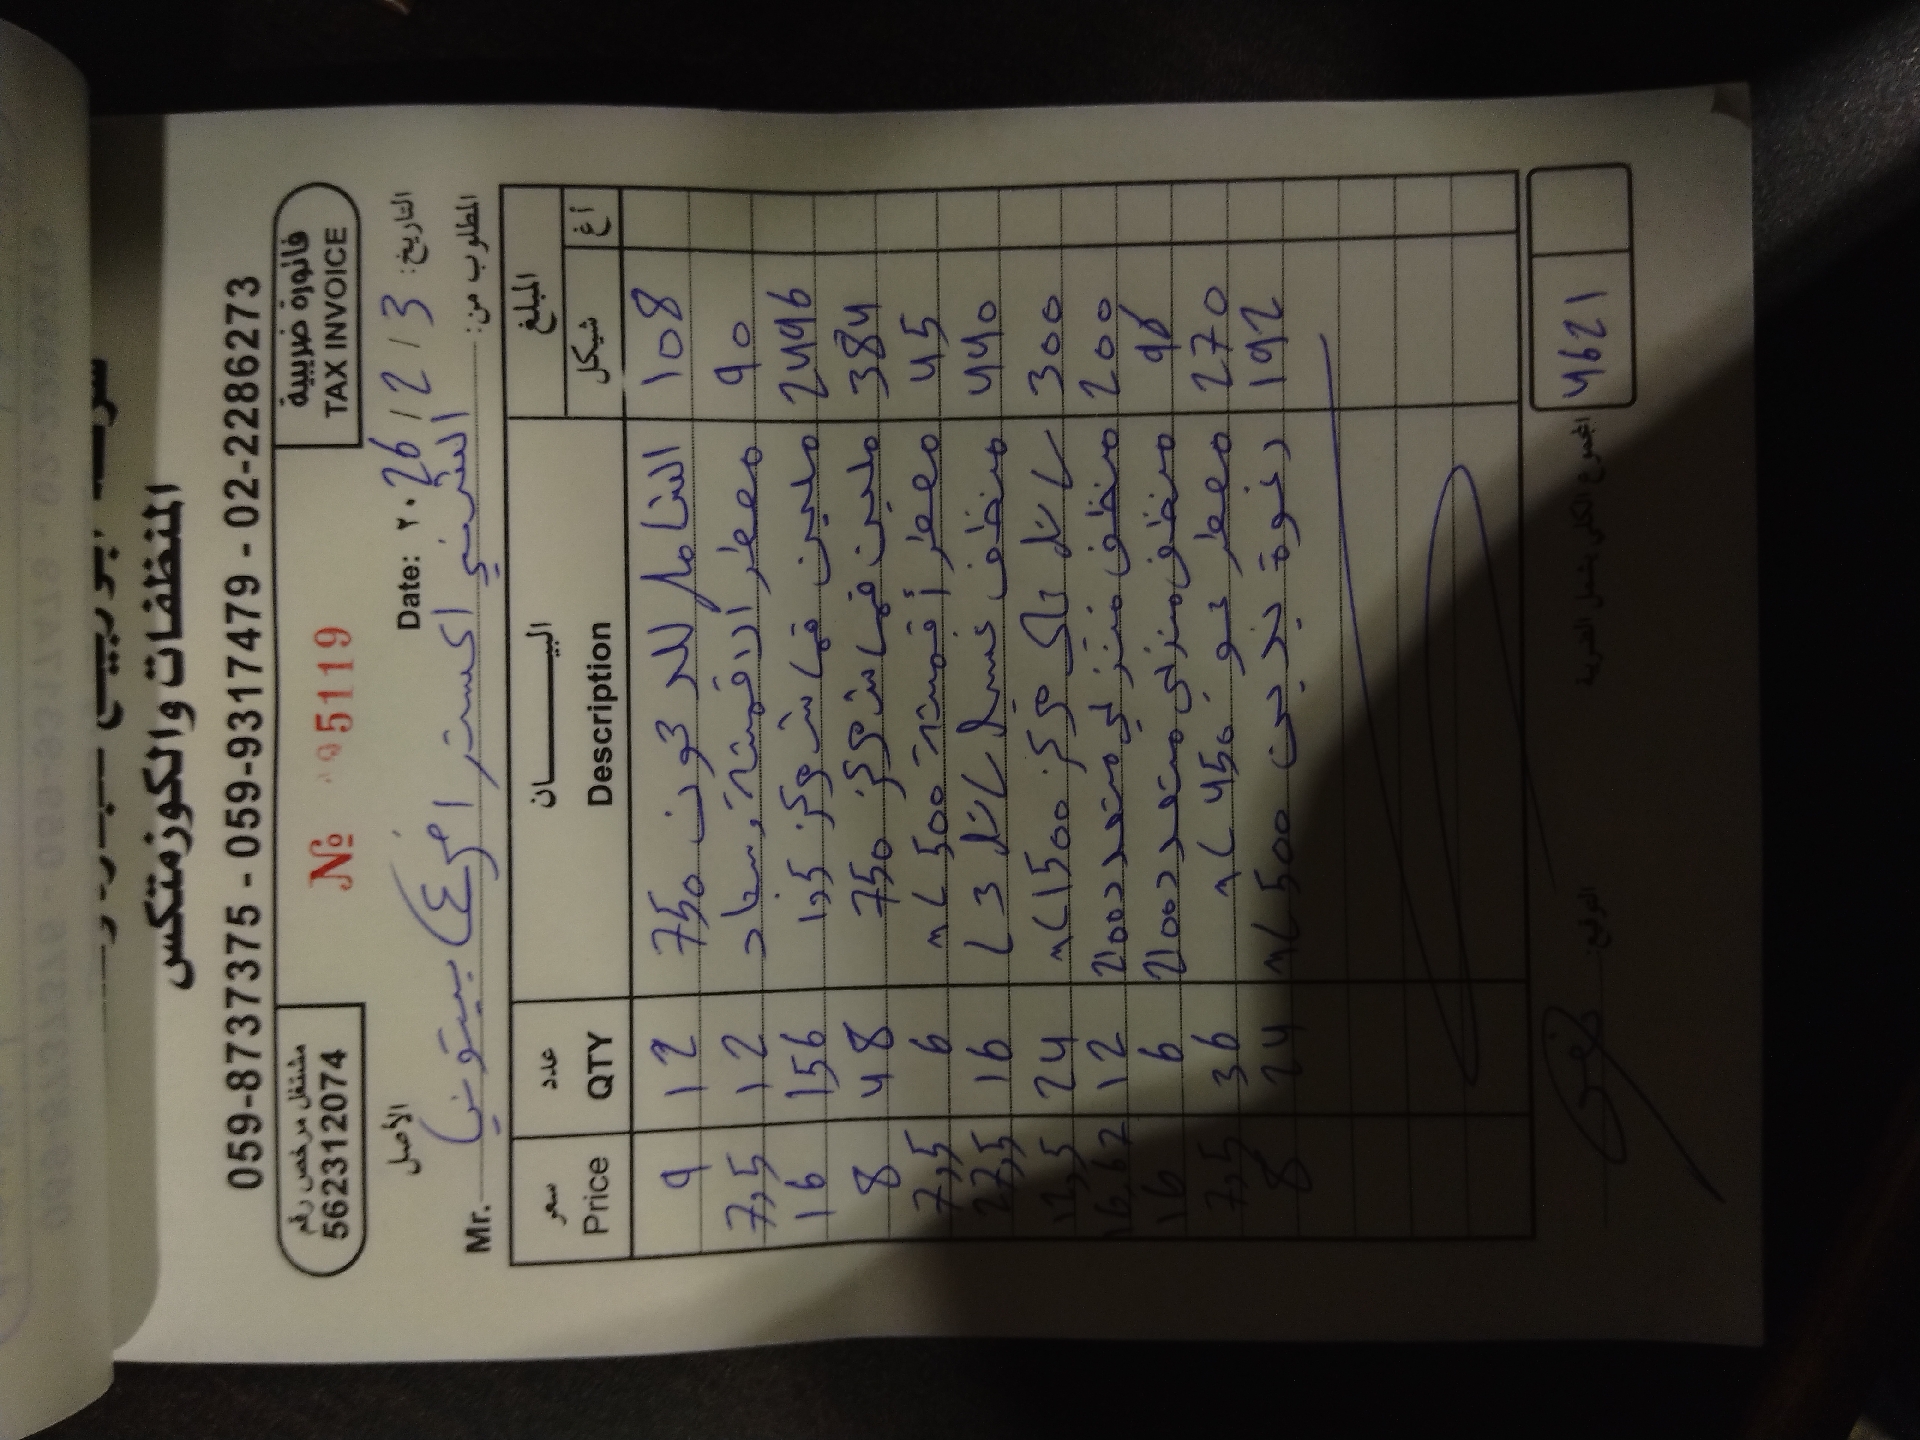 المنظفات والكوزمتكس
059-8737375 - 059-9317479 - 02-2286273
مشتغل مرخص رقم
562312074
№ 95119
فاتورة ضريبية
TAX INVOICE
الأصل
Date: ٢٠26/2/3 التاريخ:
Mr. الشني اكسترا فرع بيتونيا المطلوب من:
سعر عدد البيـــــــان المبلغ
Price QTY Description شيكل أغ
9 12 الشامل للكربون 750 108
7,5 12 معطر الاقمشة 90
16 156 ملين قماش مركز 1,5 2496
8 48 ملين قماش مركز 750 384
7,5 6 معطر أقمشة 500 ml 45
27,5 16 منظف غسيل سائل 3 L 440
12,5 24 سائل جلي مركز 1500 ml 300
16,67 12 منظف منزلي متعدد 200
16 6 منظف منزلي متعدد 96
7,5 36 معطر جو 450 ml 270
8 24 رغوة يدين 500 ml 192
المجموع الكلي يشمل الضريبة 4621
التوقيع: